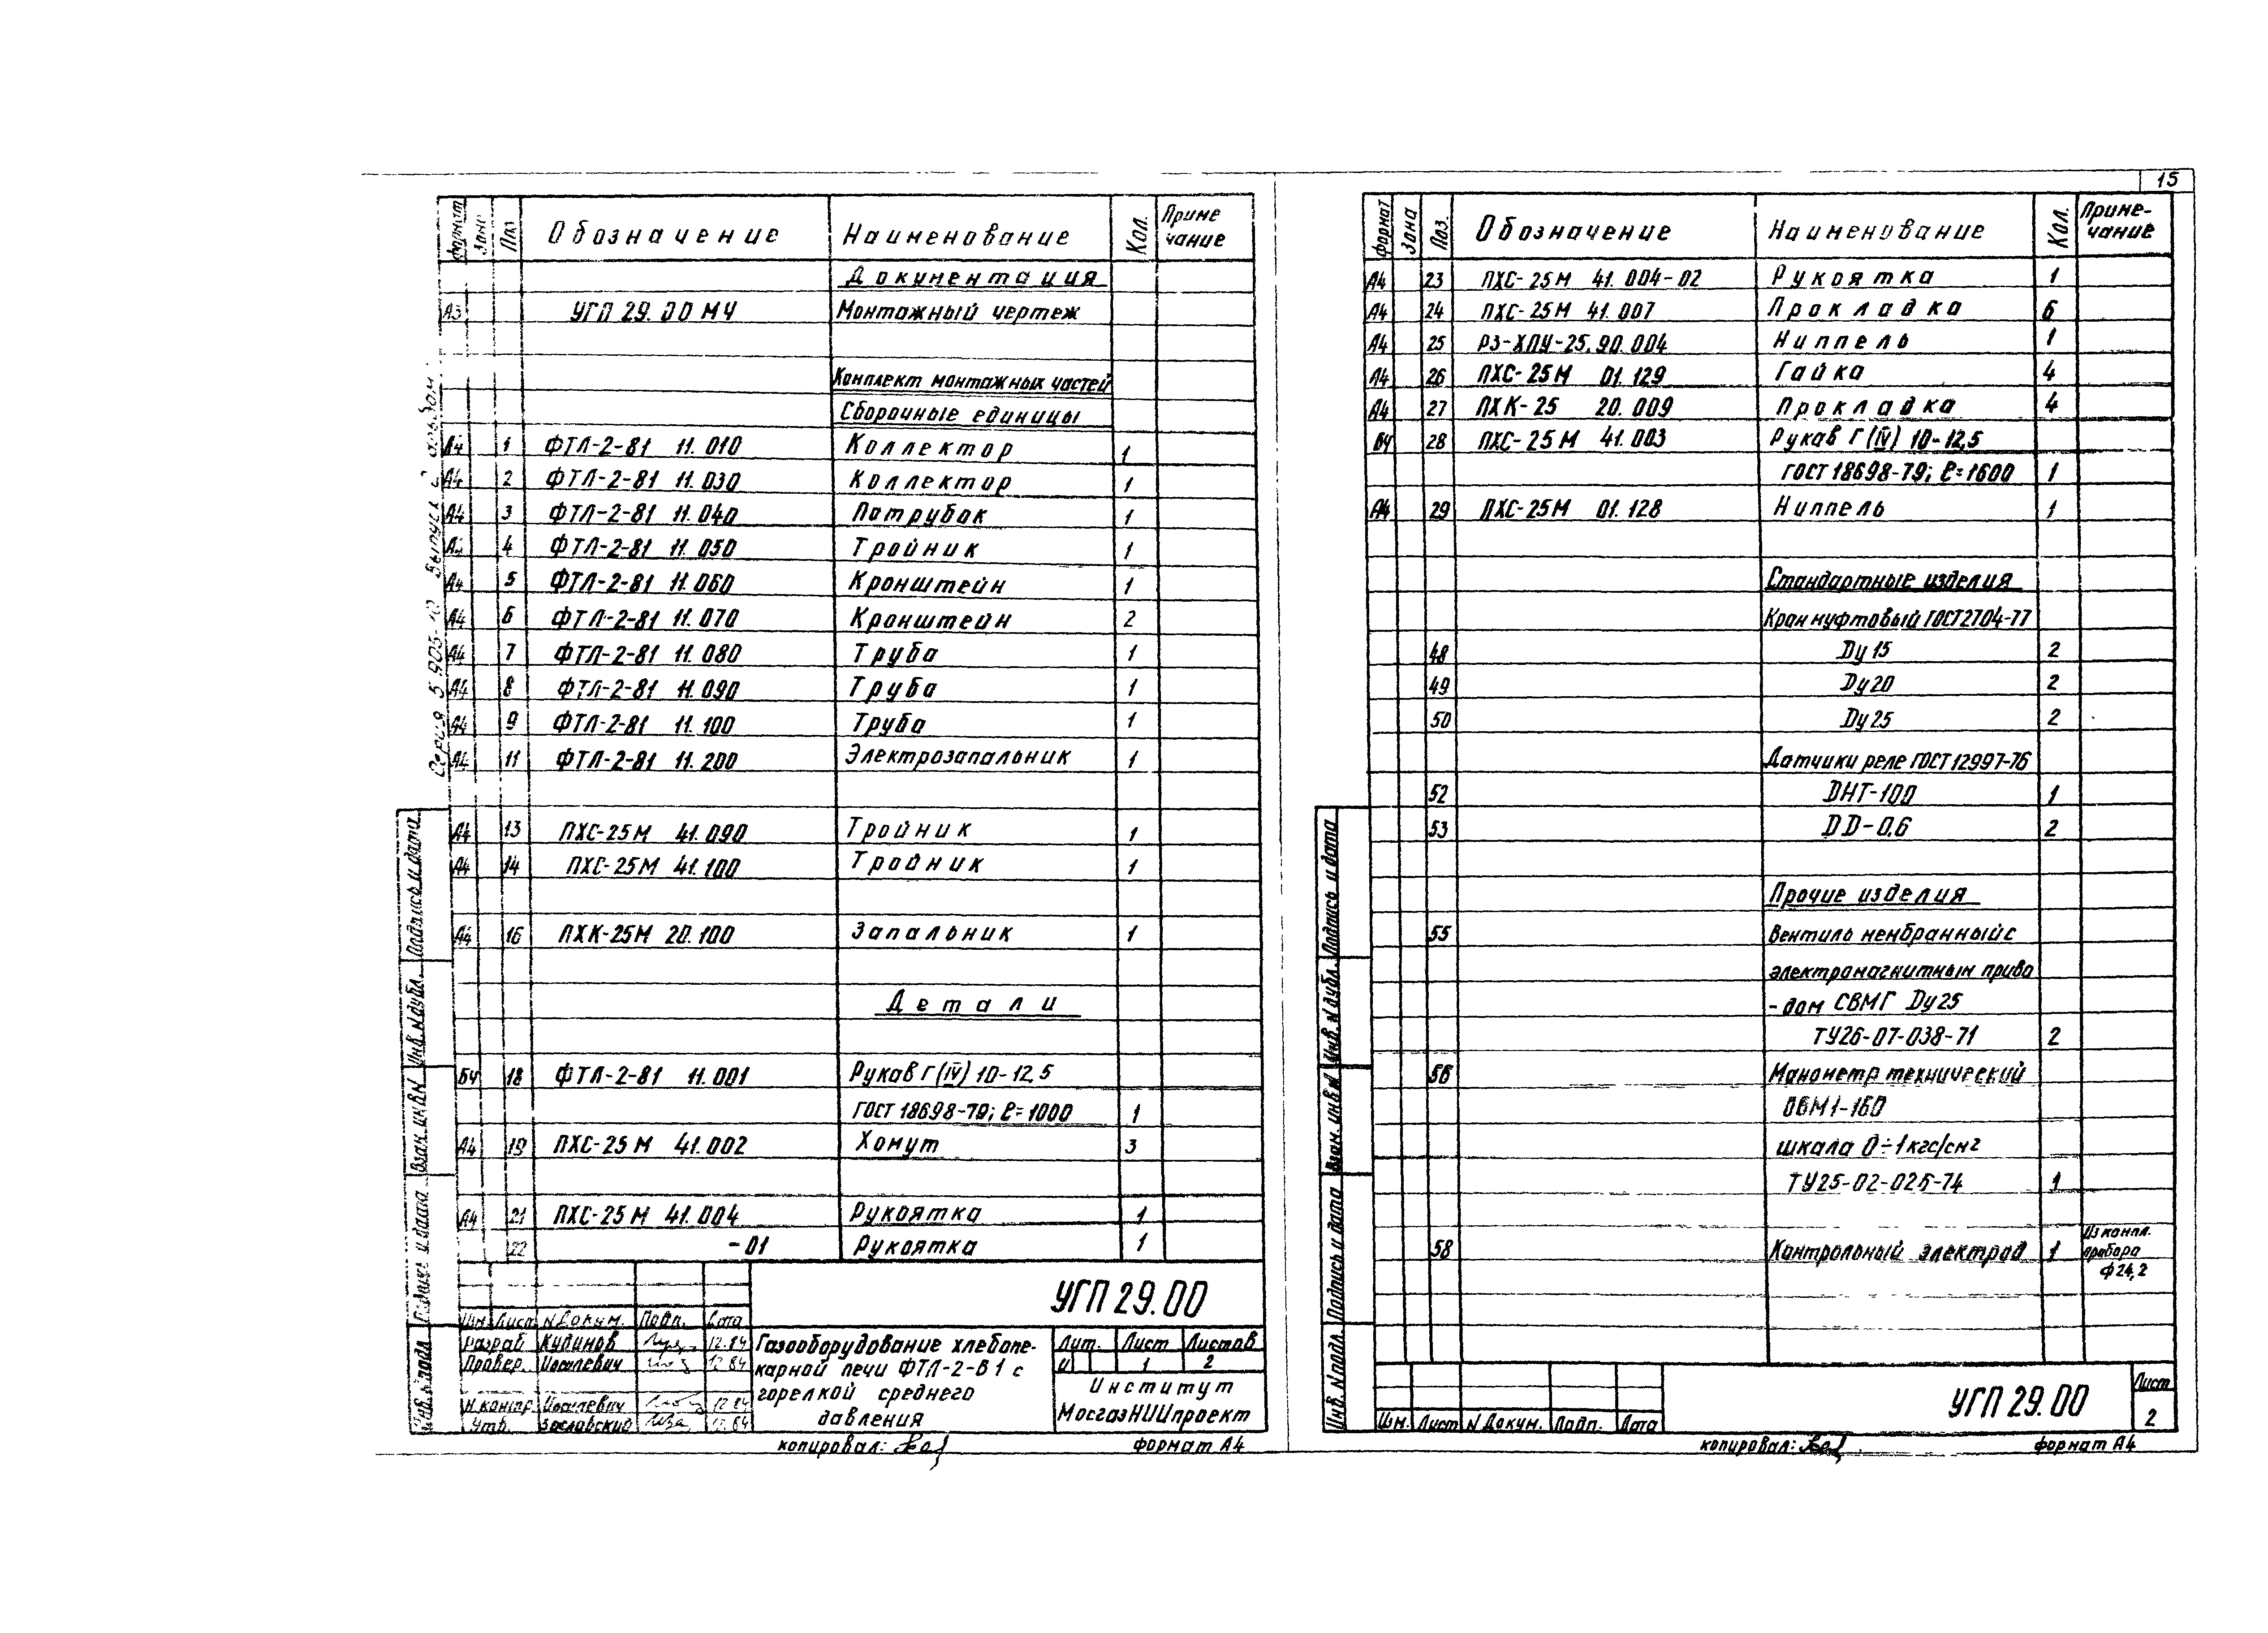 15
Формат Зона Поз. Обозначение Наименование Кол. Приме
чание
Документация
А3 УГП 29.00 МЧ Монтажный чертеж
Комплект монтажных частей
Сборочные единицы
А4 1 ФТЛ-2-81 11.010 Коллектор 1
А4 2 ФТЛ-2-81 11.030 Коллектор 1
А4 3 ФТЛ-2-81 11.040 Патрубок 1
А4 4 ФТЛ-2-81 11.050 Тройник 1
А4 5 ФТЛ-2-81 11.060 Кронштейн 1
А4 6 ФТЛ-2-81 11.070 Кронштейн 2
А4 7 ФТЛ-2-81 11.080 Труба 1
А4 8 ФТЛ-2-81 11.090 Труба 1
А4 9 ФТЛ-2-81 11.100 Труба 1
А4 11 ФТЛ-2-81 11.200 Электрозапальник 1
А4 13 ПХС-25М 41.090 Тройник 1
А4 14 ПХС-25М 41.100 Тройник 1
А4 16 ПХК-25М 20.100 Запальник 1
Детали
БЧ 18 ФТЛ-2-81 11.001 Рукав Г(IV) 10-12,5
ГОСТ 18698-79; ℓ=1000 1
А4 19 ПХС-25М 41.002 Хомут 3
А4 21 ПХС-25М 41.004 Рукоятка 1
22 -01 Рукоятка 1
УГП 29.00
Изм. Лист N Докум. Подп. Дата
Разраб Кудинов 12.84
Провер. Иоселевич 12.84
Н.контр. Иоселевич 12.84
Утв. Заславский 12.84
Газооборудование хлебопе-
карной печи ФТЛ-2-81 с
горелкой среднего
давления
Лит. Лист Листов
И 1 2
Институт
МосгазНИИпроект
копировал: формат А4
Серия 5.905-10 Выпуск 2
Подпись и дата
Инв. N дубл.
Взам. инв. N
Подпись и дата
Инв. N подл.
Формат Зона Поз. Обозначение Наименование Кол. Приме-
чание
А4 23 ПХС-25М 41.004-02 Рукоятка 1
А4 24 ПХС-25М 41.007 Прокладка 6
А4 25 РЗ-ХПУ-25.90.004 Ниппель 1
А4 26 ПХС-25М 01.129 Гайка 4
А4 27 ПХК-25 20.009 Прокладка 4
БЧ 28 ПХС-25М 41.003 Рукав Г(IV) 10-12,5
ГОСТ 18698-79; ℓ=1600 1
А4 29 ПХС-25М 01.128 Ниппель 1
Стандартные изделия
Кран муфтовый ГОСТ 2704-77
48 Dу 15 2
49 Dу 20 2
50 Dу 25 2
Датчики реле ГОСТ 12997-76
52 DНТ-100 1
53 DD-0,6 2
Прочие изделия
55 Вентиль мембранный с
электромагнитным приво
-дом СВМГ Dу25
ТУ26-07-038-71 2
56 Манометр технический
ОБМ1-160
шкала 0÷1кгс/см2
ТУ25-02-026-74 1
58 Контрольный электрод 1 Из компл.
прибора
Ф24,2
УГП 29.00
Лист
2
Изм. Лист N Докум. Подп. Дата
копировал: формат А4
Подпись и дата
Инв. N дубл.
Взам. инв. N
Подпись и дата
Инв. N подл.